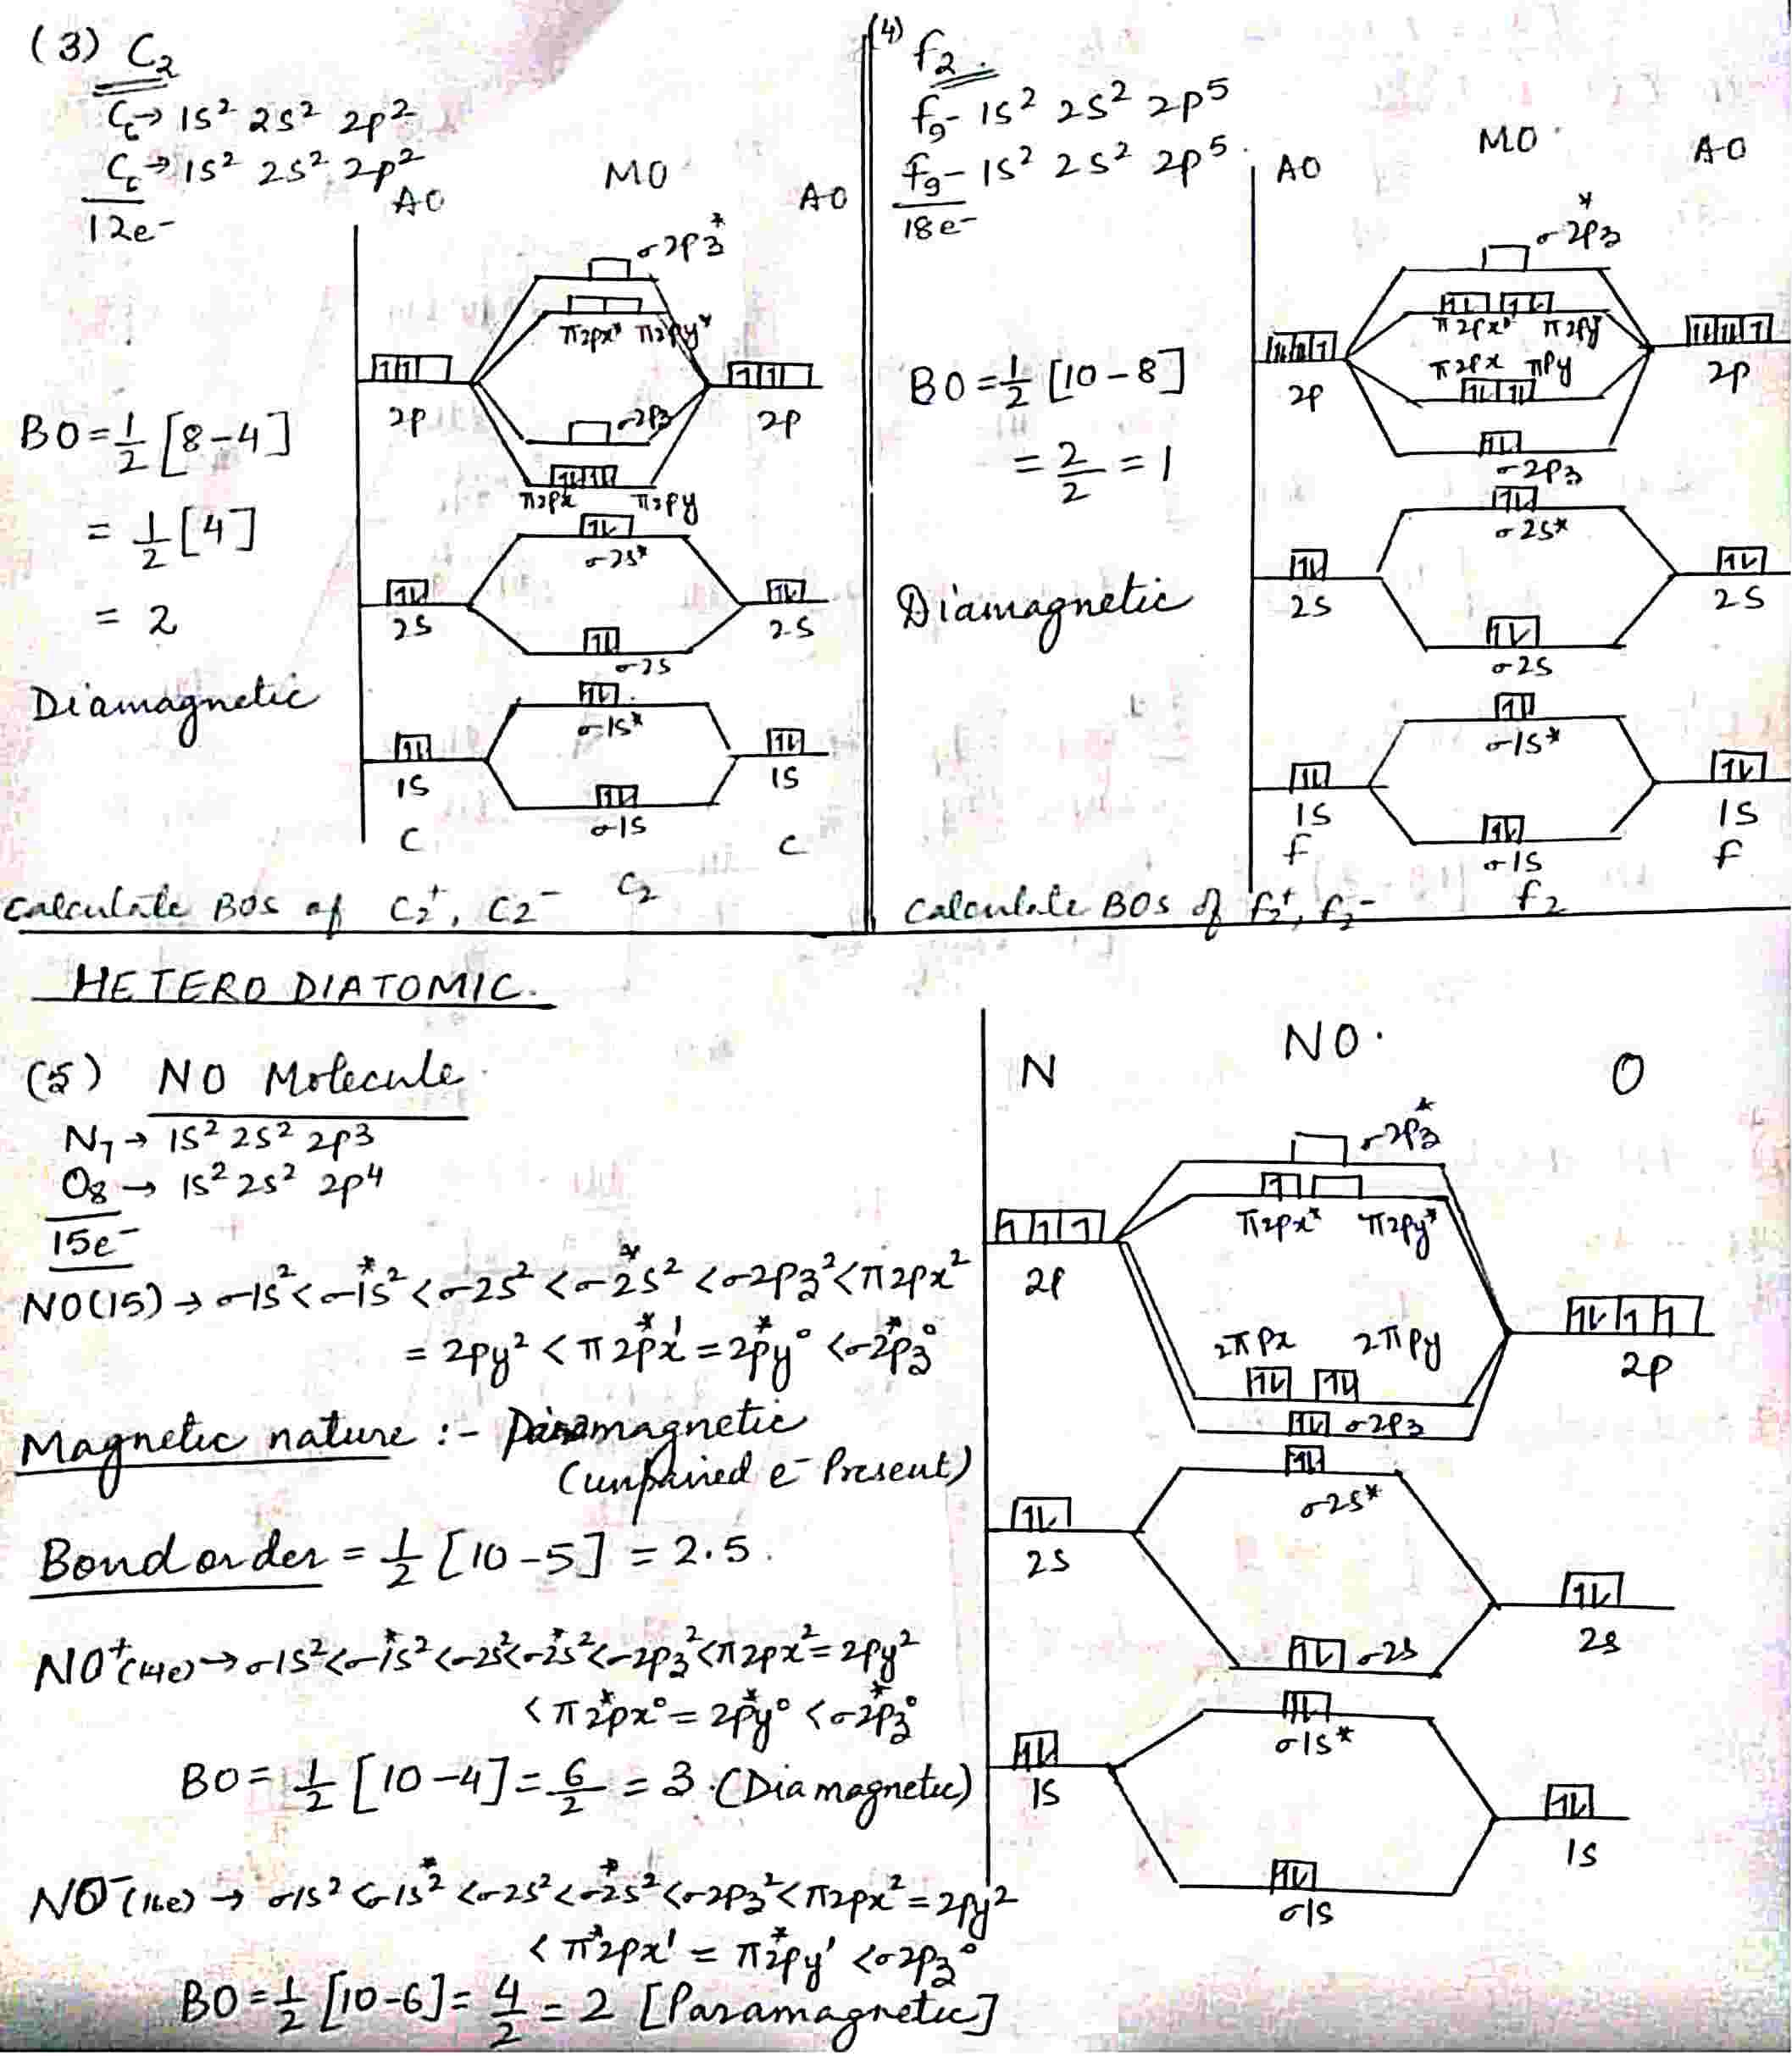 (3) C₂
C₆→ 1S² 2S² 2p²
C₆→ 1S² 2S² 2p²
12e⁻
AO MO AO
σ2p3*
π2px* π2py*
2p 2p
σ2p3
π2px π2py
BO = 1/2 [8-4]
= 1/2 [4]
= 2
Diamagnetic
σ2s*
2S 2S
σ2s
σ1s*
1S 1S
σ1s
C C₂ C
Calculate BOs of C₂⁺, C₂⁻
(4) f₂.
f₉- 1S² 2S² 2p⁵
f₉- 1S² 2S² 2p⁵.
18e⁻
AO MO AO
σ2p3*
π2px* π2py*
π2px πpy
2p 2p
σ2p3
BO = 1/2 [10-8]
= 2/2 = 1
Diamagnetic
σ2s*
2S 2S
σ2s
σ1s*
1S 1S
σ1s
f f₂ f
Calculate BOs of f₂⁺, f₂⁻
HETERO DIATOMIC.
(5) NO Molecule
N₇ → 1S² 2S² 2p3
O₈ → 1S² 2s² 2p4
15e⁻
NO(15) → σ1s² < σ*1s² < σ2s² < σ*2s² < σ2p3² < π2px²
= 2py² < π2p*x¹ = 2p*y⁰ < σ2p*3⁰
Magnetic nature :- Paramagnetic
(unpaired e⁻ Present)
Bond order = 1/2 [10-5] = 2.5.
NO⁺(14e) → σ1s² < σ*1s² < σ2s² < σ*2s² < σ2p3² < π2px² = 2py²
< π2*px⁰ = 2p*y⁰ < σ2p*3⁰
BO = 1/2 [10-4] = 6/2 = 3. (Diamagnetic)
NO⁻(16e) → σ1s² < σ1s*² < σ2s² < σ*2s² < σ2p3² < π2px² = 2py²
< π*2px¹ = π*2py¹ < σ2p3*⁰
BO = 1/2 [10-6] = 4/2 = 2 [Paramagnetic]
N NO. O
σ2p3*
π2px* π2py*
2p
2πpx 2πpy
2p
σ2p3
σ2s*
2S
2s
σ2s
σ1s*
1S
1s
σ1s